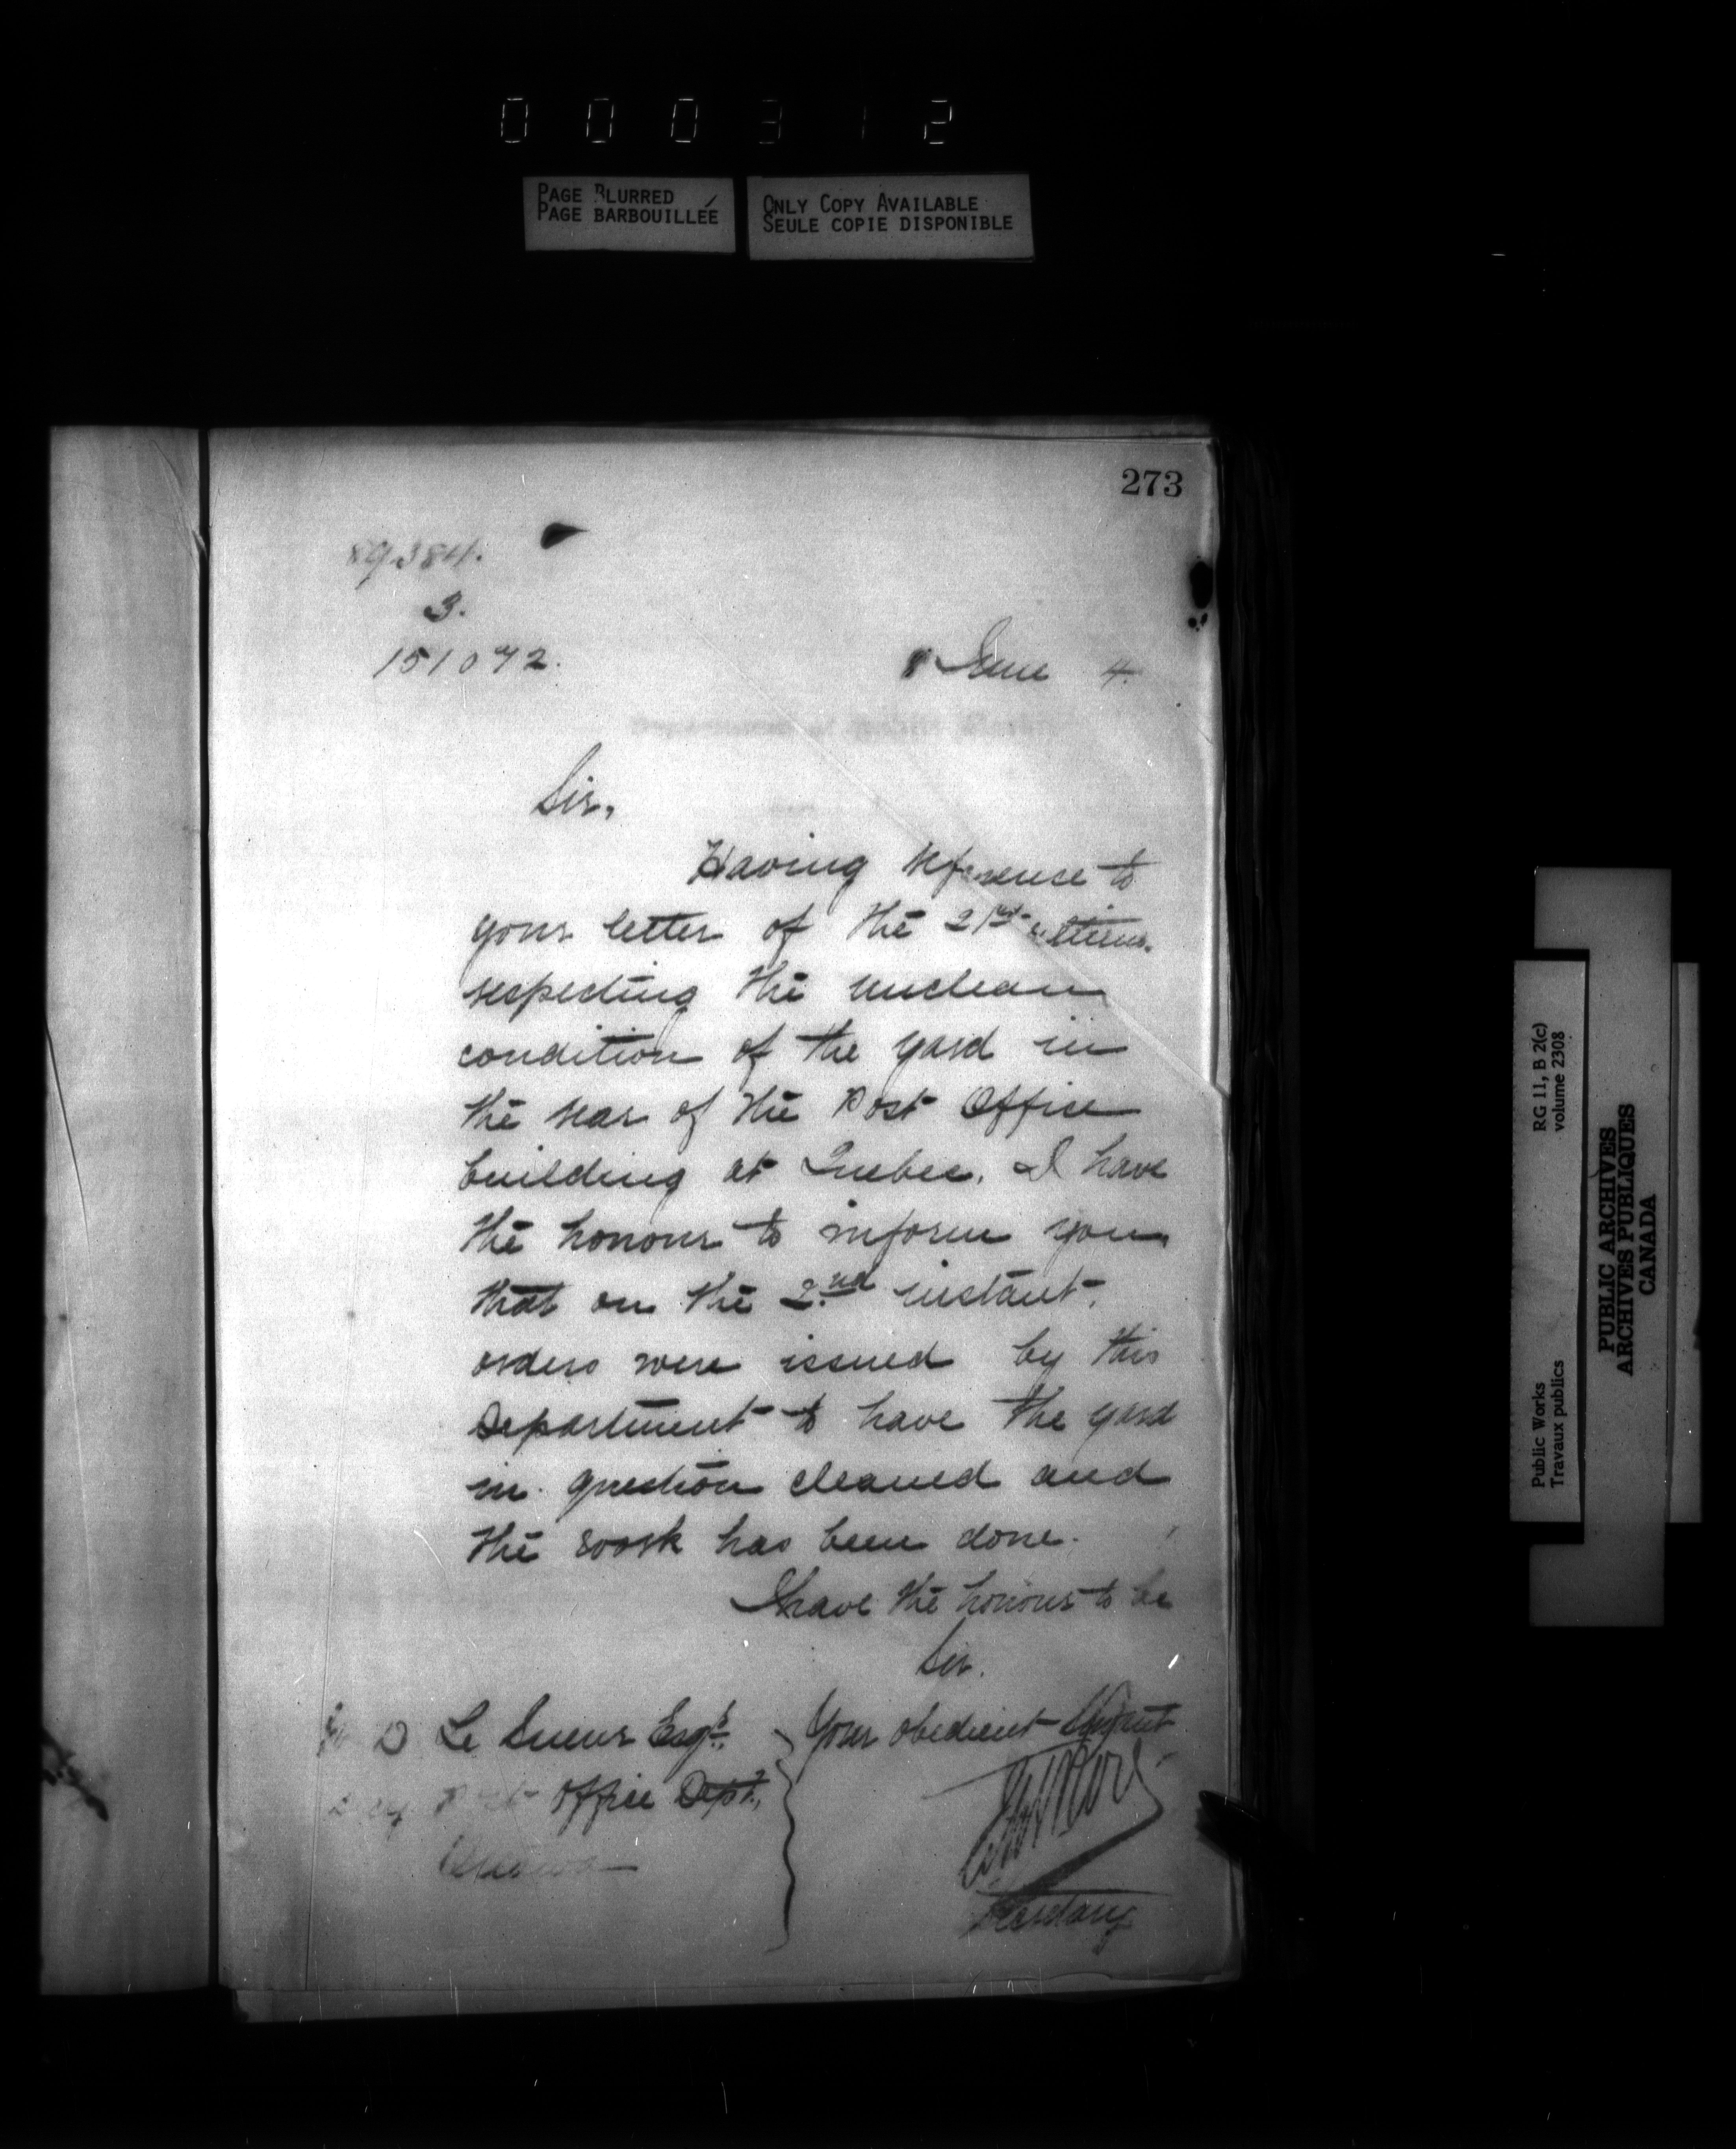 000312
PAGE BLURRED
PAGE BARBOUILLÉE
ONLY COPY AVAILABLE
SEULE COPIE DISPONIBLE
273
89384.
3.
151072.
June 4.
Sir,
Having reference to
your letter of the 21st ultimo.
respecting the unclean
condition of the yard in
the rear of the Post Office
building at Quebec, I have
the honour to inform you
that on the 2nd instant,
orders were issued by this
Department to have the yard
in question cleaned and
the work has been done.
I have the honour to be
Sir.
Your obedient Servant
Secretary
D Le Sueur Esqr.
Post Office Dept.,
Ottawa
RG 11, B 2(c)
volume 2308
Public Works
Travaux publics
PUBLIC ARCHIVES
ARCHIVES PUBLIQUES
CANADA